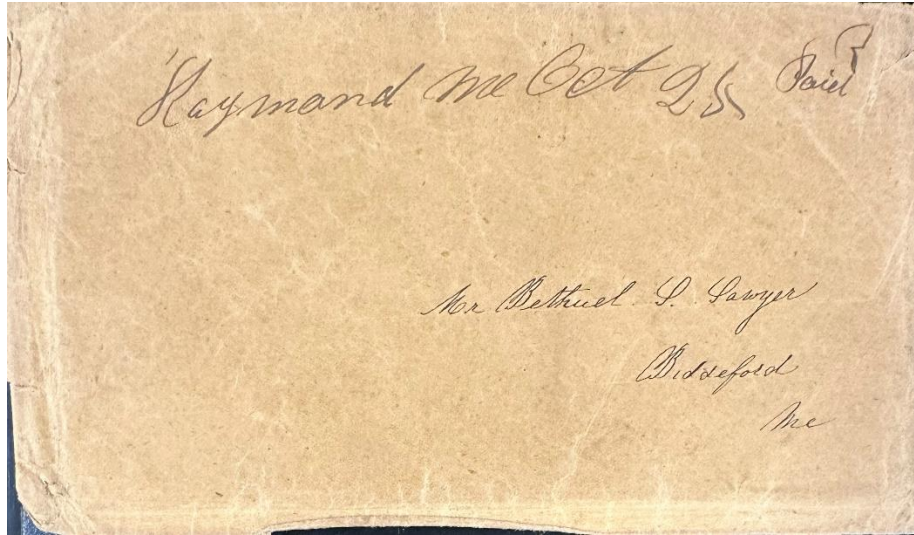 Raymond Me Oct 25 Paid 3
Mr Bethuel S. Sawyer
Biddeford
Me